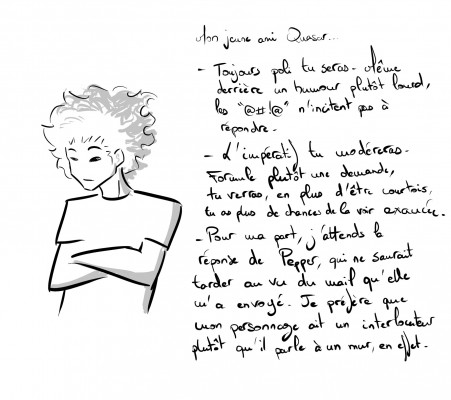 Mon jeune ami Quasar...
- Toujours poli tu seras. Même
derrière un humour plutôt lourd,
les "@#!@" n'incitent pas à
répondre.
- L'impératif tu modéreras.
Formule plutôt une demande,
tu verras, en plus d'être courtois,
tu as plus de chances de la voir exaucée.
- Pour ma part, j'attends la
réponse de Pepper, qui ne saurait
tarder au vu du mail qu'elle
m'a envoyé. Je préfère que
mon personnage ait un interlocuteur
plutôt qu'il parle à un mur, en effet.